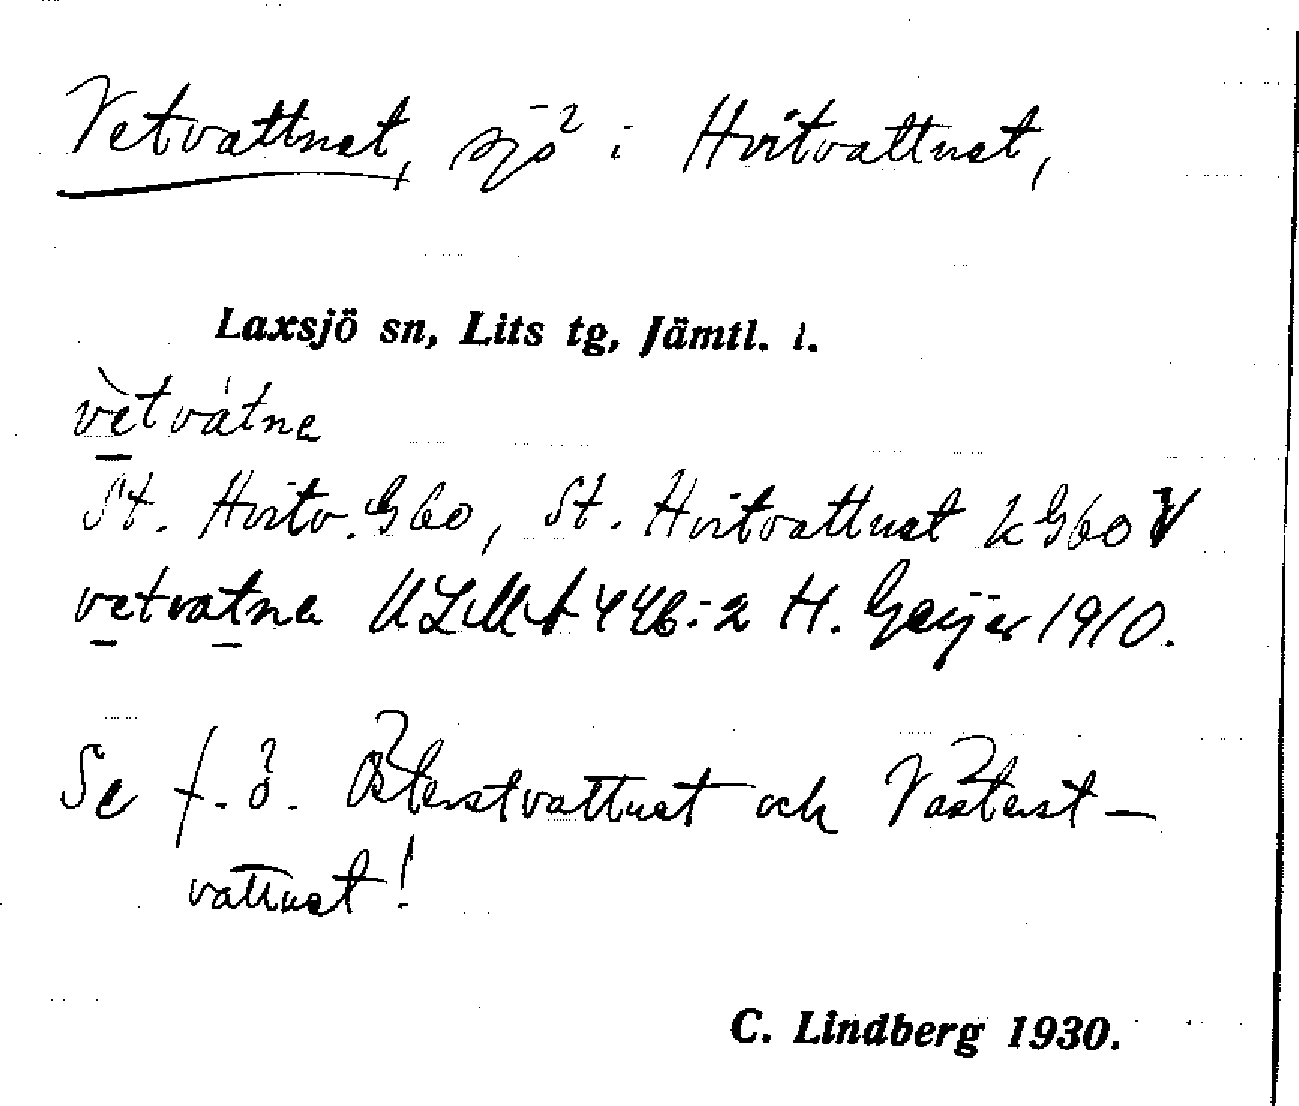 Vetvattnet, sjö i Hvitvattnet,
Laxsjö sn, Lits tg, Jämtl. l.
vètvátne
St. Hvitv. G60, St. Hvitvattnet k G60 V
vetvatne ULMA 446:2 H. Geijer 1910.
Se f. ö. Österstvattnet och Västerst-
vattnet!
C. Lindberg 1930.